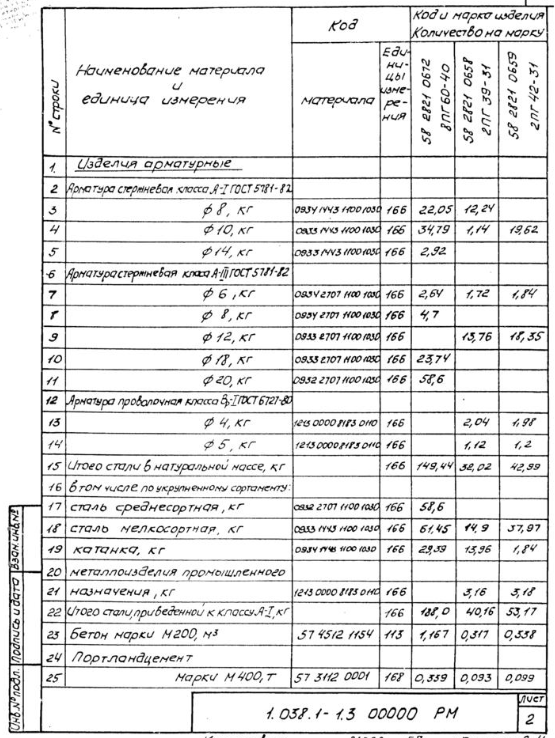 Код
Код и марка изделия
Количество на марку
№ строки
Наименование материала
и
единица измерения
материала
Еди-
ни-
цы
изме-
ре-
ния
58 2821 0672
8ПГ60-40
58 2821 0658
2ПГ 39-31
58 2821 0659
2ПГ 42-31
1. Изделия арматурные
2 Арматура стержневая класса А-I ГОСТ 5781-82
3 ϕ 8, кг 0934 1443 1100 1030 166 22,05 12,24
4 ϕ 10, кг 0933 1443 1100 1030 166 34,79 1,14 19,62
5 ϕ 14, кг 0933 1443 1100 1030 166 2,92
6 Арматура стержневая класа А-III ГОСТ 5781-82
7 ϕ 6, кг 0934 2707 1100 1030 166 2,64 1,72 1,84
8 ϕ 8, кг 0934 2707 1100 1030 166 4,7
9 ϕ 12, кг 0933 2707 1100 1030 166 13,76 18,35
10 ϕ 18, кг 0933 2707 1100 1030 166 23,74
11 ϕ 20, кг 0932 2707 1100 1030 166 58,6
12 Арматура проволочная класса Вр-I ГОСТ 6727-80
13 ϕ 4, кг 1213 0000 8183 0110 166 2,04 1,98
14 ϕ 5, кг 1213 0000 8183 0110 166 1,12 1,2
15 Итого стали в натуральной массе, кг 166 149,44 32,02 42,99
16 в том числе по укрупненному сортаменту:
17 сталь среднесортная, кг 0932 2707 1100 1030 166 58,6
18 сталь мелкосортная, кг 0933 1443 1100 1030 166 61,45 14,9 37,97
19 катанка, кг 0934 1443 1100 1030 166 29,39 13,96 1,84
20 металлоизделия промышленного
21 назначения, кг 1213 0000 8183 0110 166 3,16 3,18
22 Итого стали, приведенной к классу А-I, кг 166 188,0 40,16 53,17
23 Бетон марки М200, м³ 57 4512 1154 113 1,167 0,317 0,338
24 Портландцемент
25 марки М 400, т 57 3112 0001 168 0,339 0,093 0,099
Инв.№ подл. Подпись и дата Взам.инв.№
1.038.1-1.3 00000 РМ
Лист
2